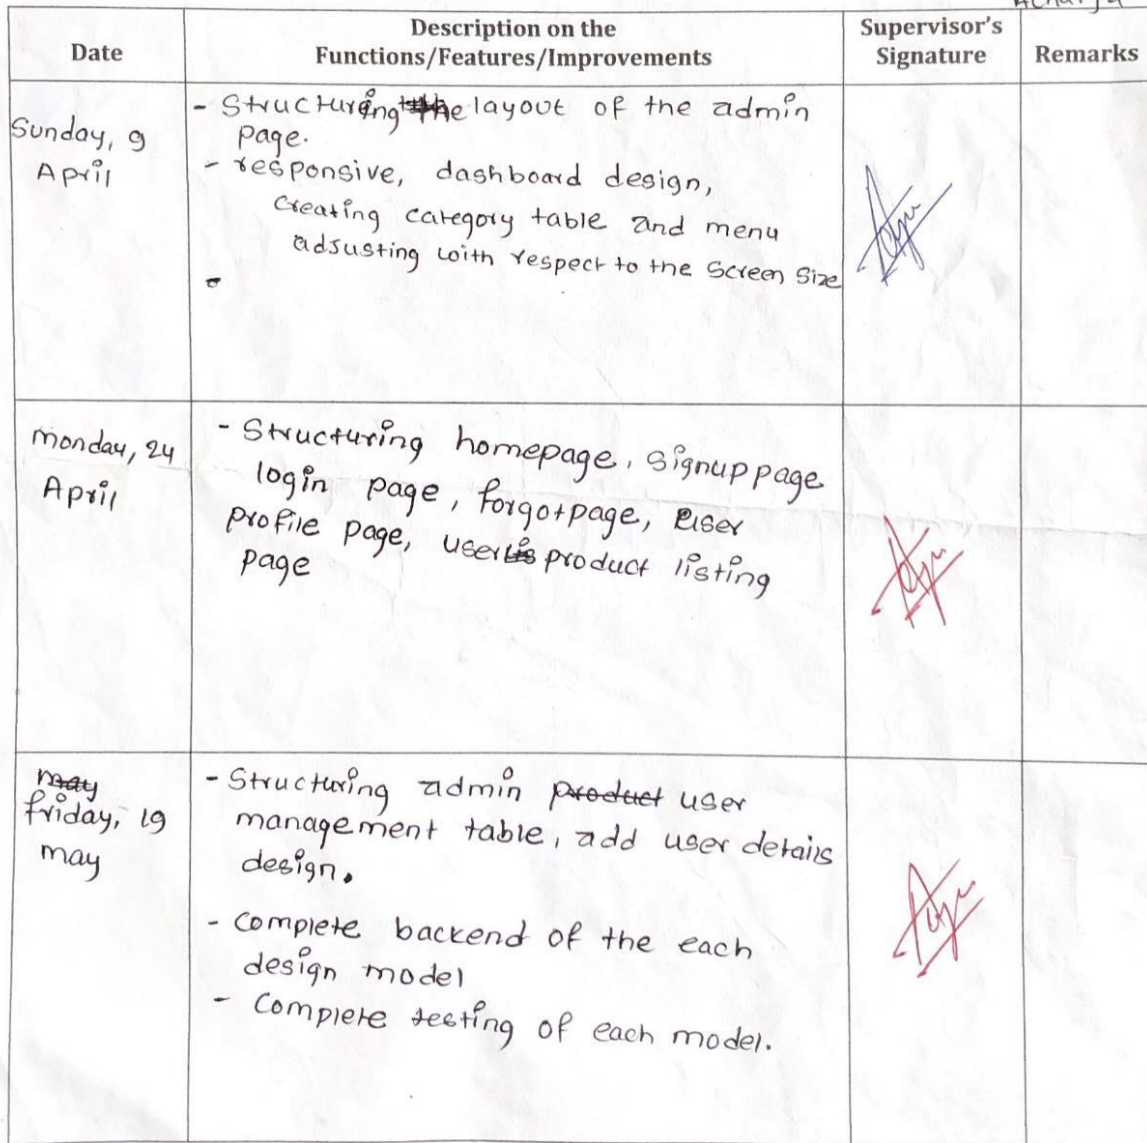 Acharya
Date
Description on the
Functions/Features/Improvements
Supervisor's
Signature
Remarks
Sunday, 9
April
- Structuring the layout of the admin
page.
- responsive, dashboard design,
creating category table and menu
adjusting with respect to the screen size
-
monday, 24
April
- Structuring homepage, signup page
login page, forgot page, user
profile page, user product listing
page
may
friday, 19
may
- Structuring admin product user
management table, add user details
design.
- Complete backend of the each
design model
- Complete testing of each model.